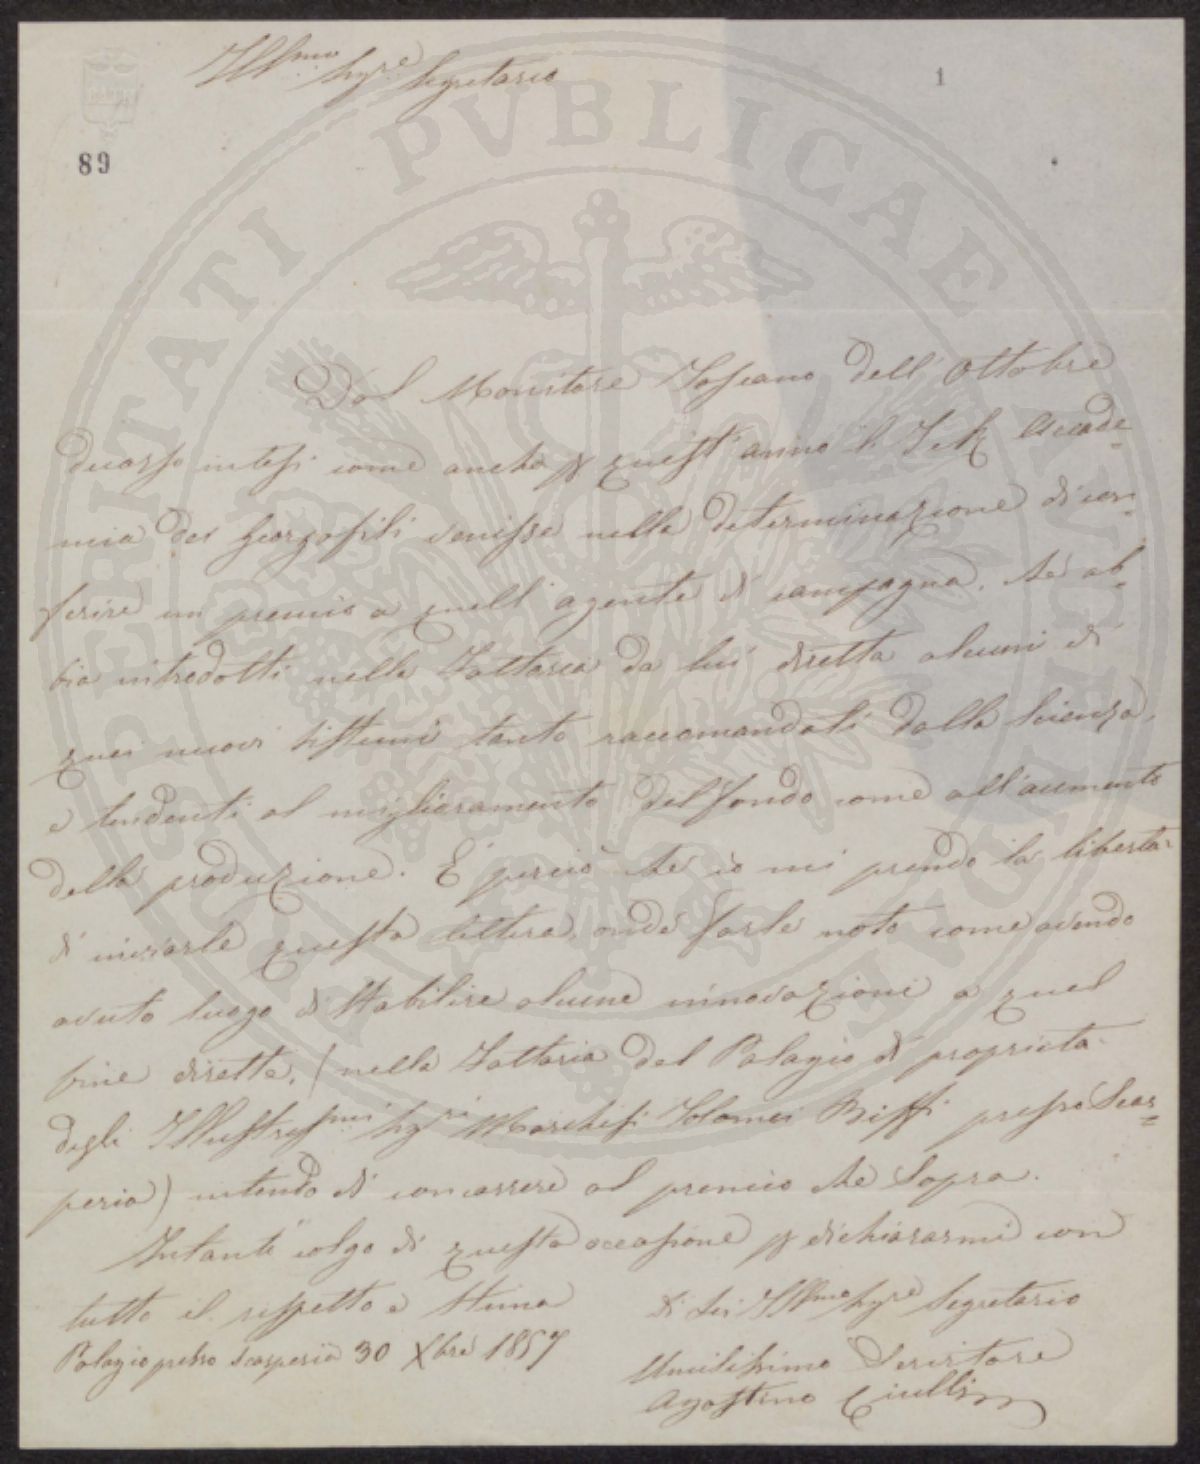 1
Illmo Sigre Segretario
89
Dal Monitore Toscano dell' Ottobre
decorso intesi come anche p quest' anno l' I. e R. Accade=
mia dei Georgofili venisse nella determinazione di con=
ferire un premio a quell' agente di campagna, che ab=
bia introdotti nella Fattoria da lui diretta alcuni di
quei nuovi sistemi tanto raccomandati dalla Scienza,
e tendenti al miglioramento del fondo come all' aumento
della produzione. E perciò che io mi prendo la libertà
di inviarle questa lettera, onde farle noto come avendo
avuto luogo di stabilire alcune innovazioni a quel
fine dirette, (nella Fattoria del Palagio di proprietà
degli Illustrissmi Sigri Marchesi Tolomei Biffi presso Scar=
peria) intendo di concorrere al premio che sopra.
Intanto colgo di questa occasione p dichiararmi con
tutto il rispetto e stima
Di Lei Illmo Sigre Segretario
Palagio presso Scarperia 30 Xbre 1857
Umilissimo Servitore
Agostino Ciulli
PROSPERITATI PVBLICAE AVGENDAE